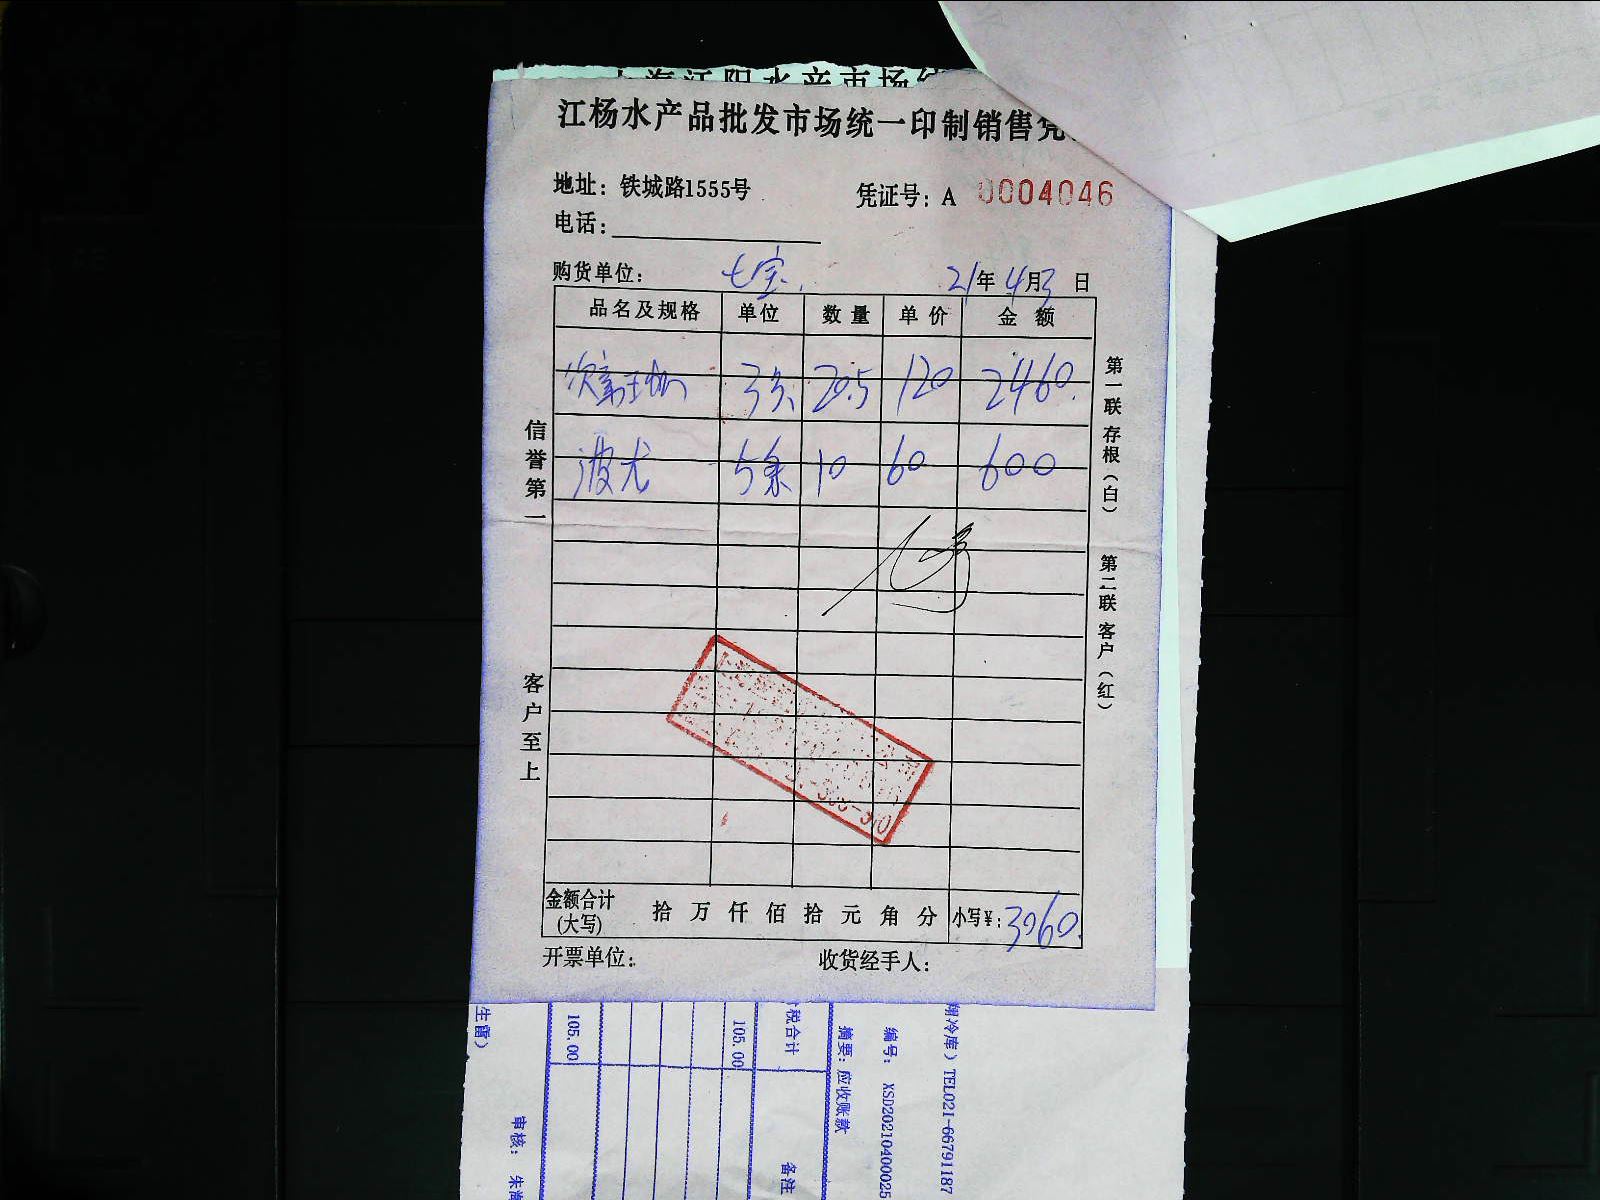 江杨水产品批发市场统一印制销售凭
地址：铁城路1555号
凭证号：A 0004046
电话：
购货单位：七宝
21年4月3日
品名及规格 单位 数量 单价 金额
3条 20.5 120 2460.
波龙 5条 10 60 600
信誉第一
客户至上
第一联存根（白）
第二联客户（红）
金额合计（大写） 拾万仟佰拾元角分 小写¥：3060.
开票单位：
收货经手人：
翔冷库）TEL021-66791187
编号： XSD20210400025
摘要：应收账款
税合计
备注
105.00
105.00
审核：